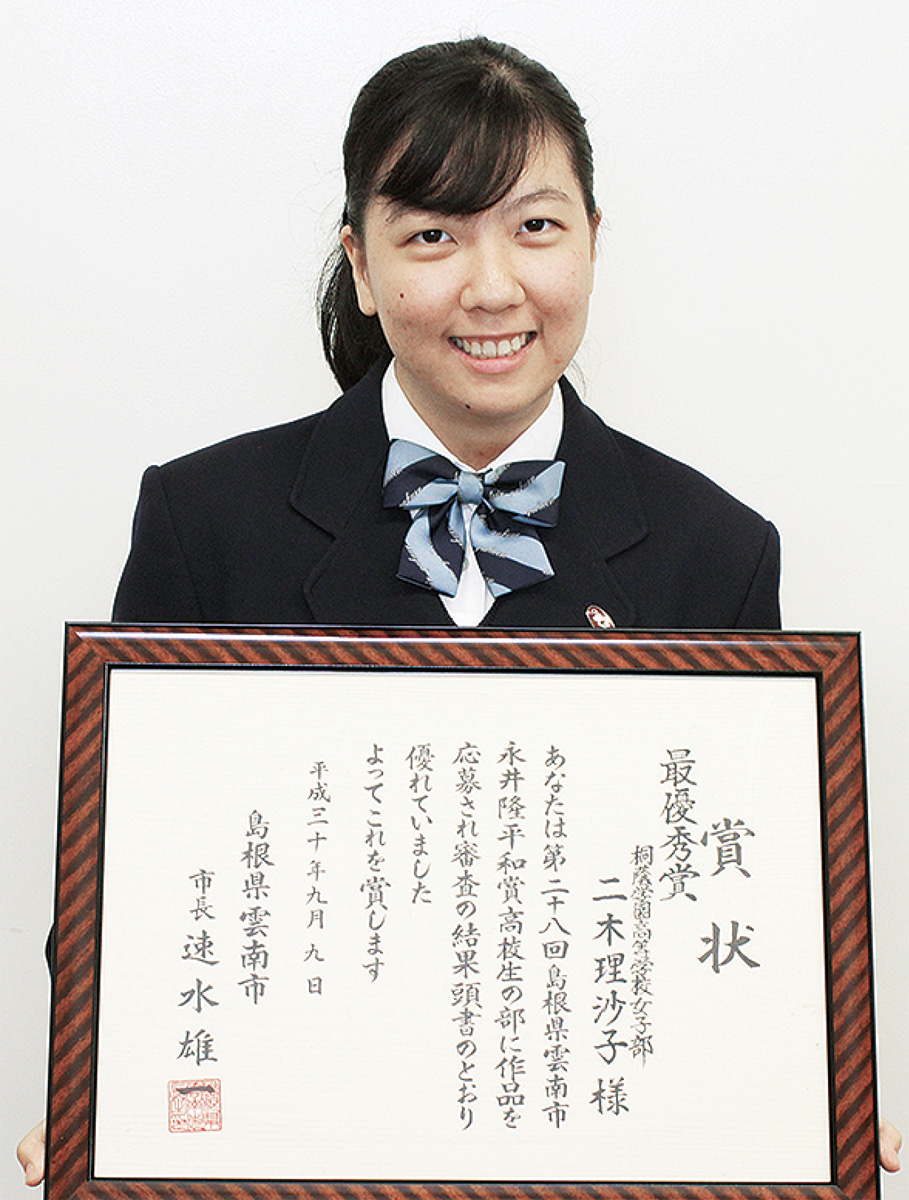 賞状
最優秀賞
桐蔭学園高等学校女子部
二木理沙子様
あなたは第二十八回島根県雲南市
永井隆平和賞高校生の部に作品を
応募され審査の結果頭書のとおり
優れていました
よってこれを賞します
平成三十年九月九日
島根県雲南市
市長 速水雄一